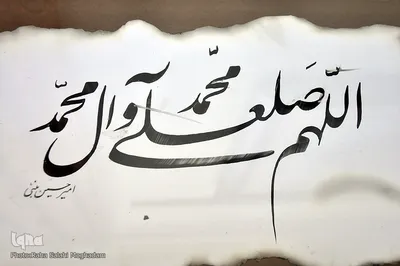 اللّهم صَل علی محمّد وآل محمّد
امیرحسین
iqna
Salahi Moghadam